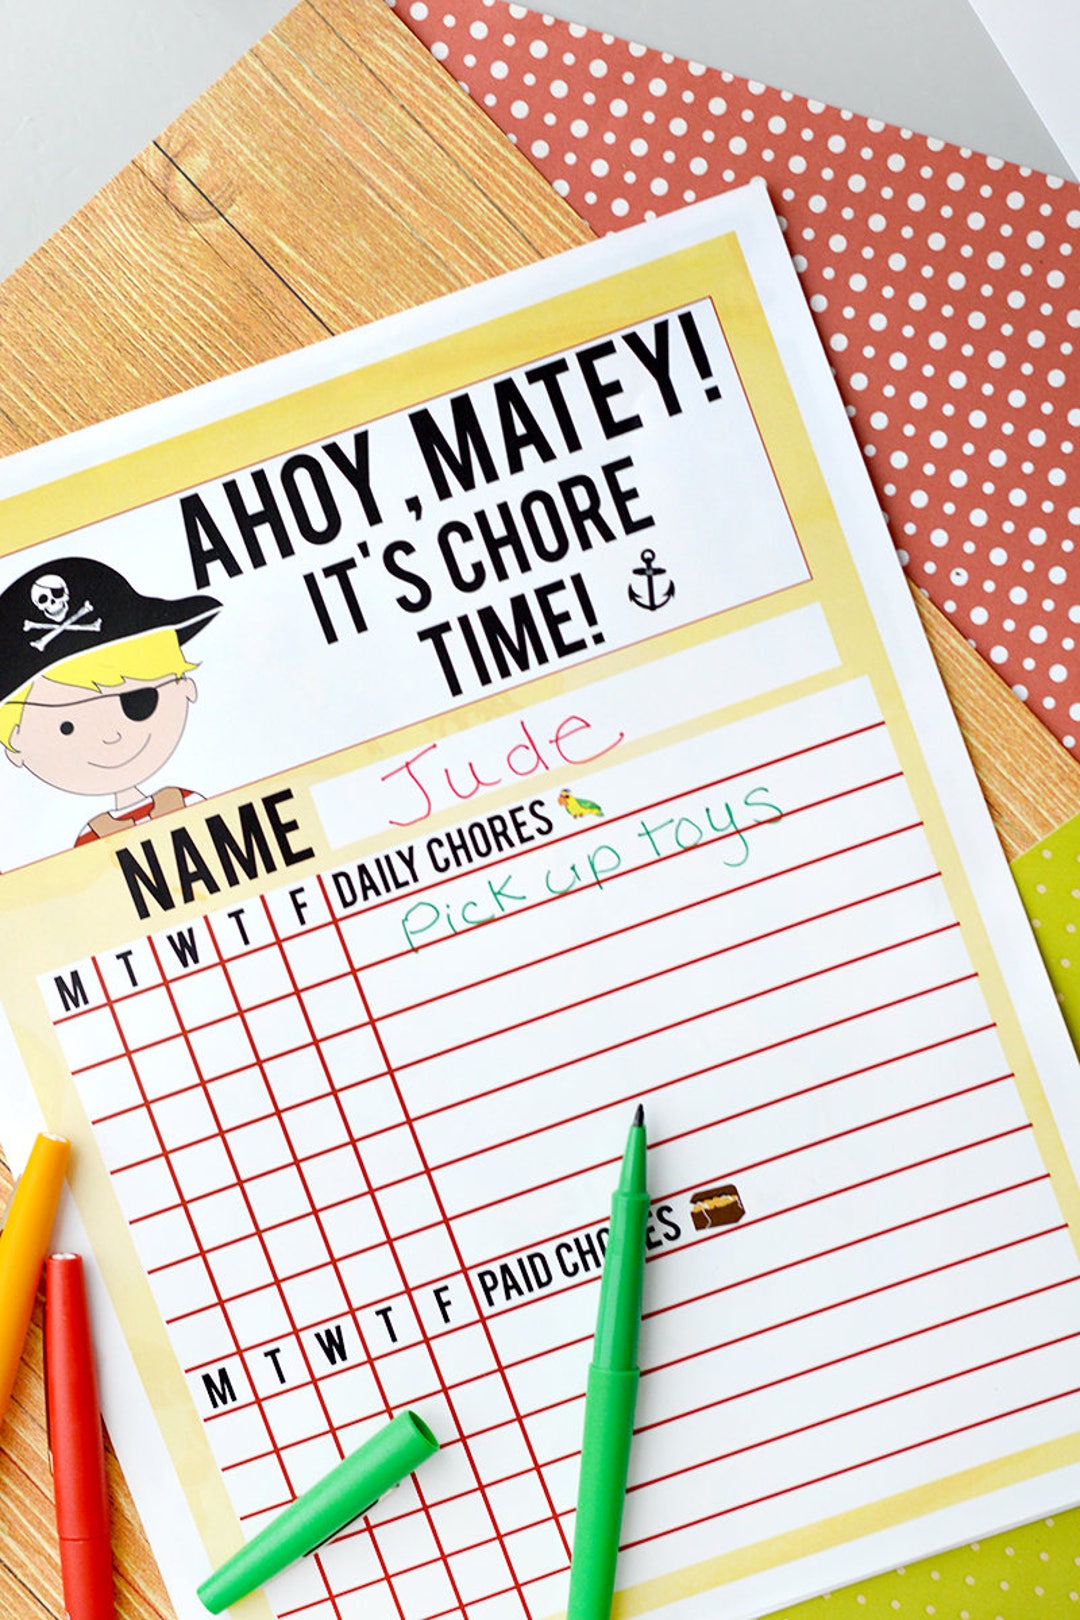 AHOY, MATEY!
IT'S CHORE
TIME!
NAME Jude
M T W T F DAILY CHORES
Pick up toys
M T W T F PAID CHORES